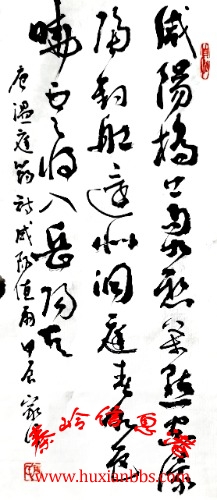 咸陽橋上雨如懸萬點空濛
隔釣船還似洞庭春水色
曉雲將入岳陽天
唐溫庭筠詩咸陽值雨甲辰
www.huxianbbs.com